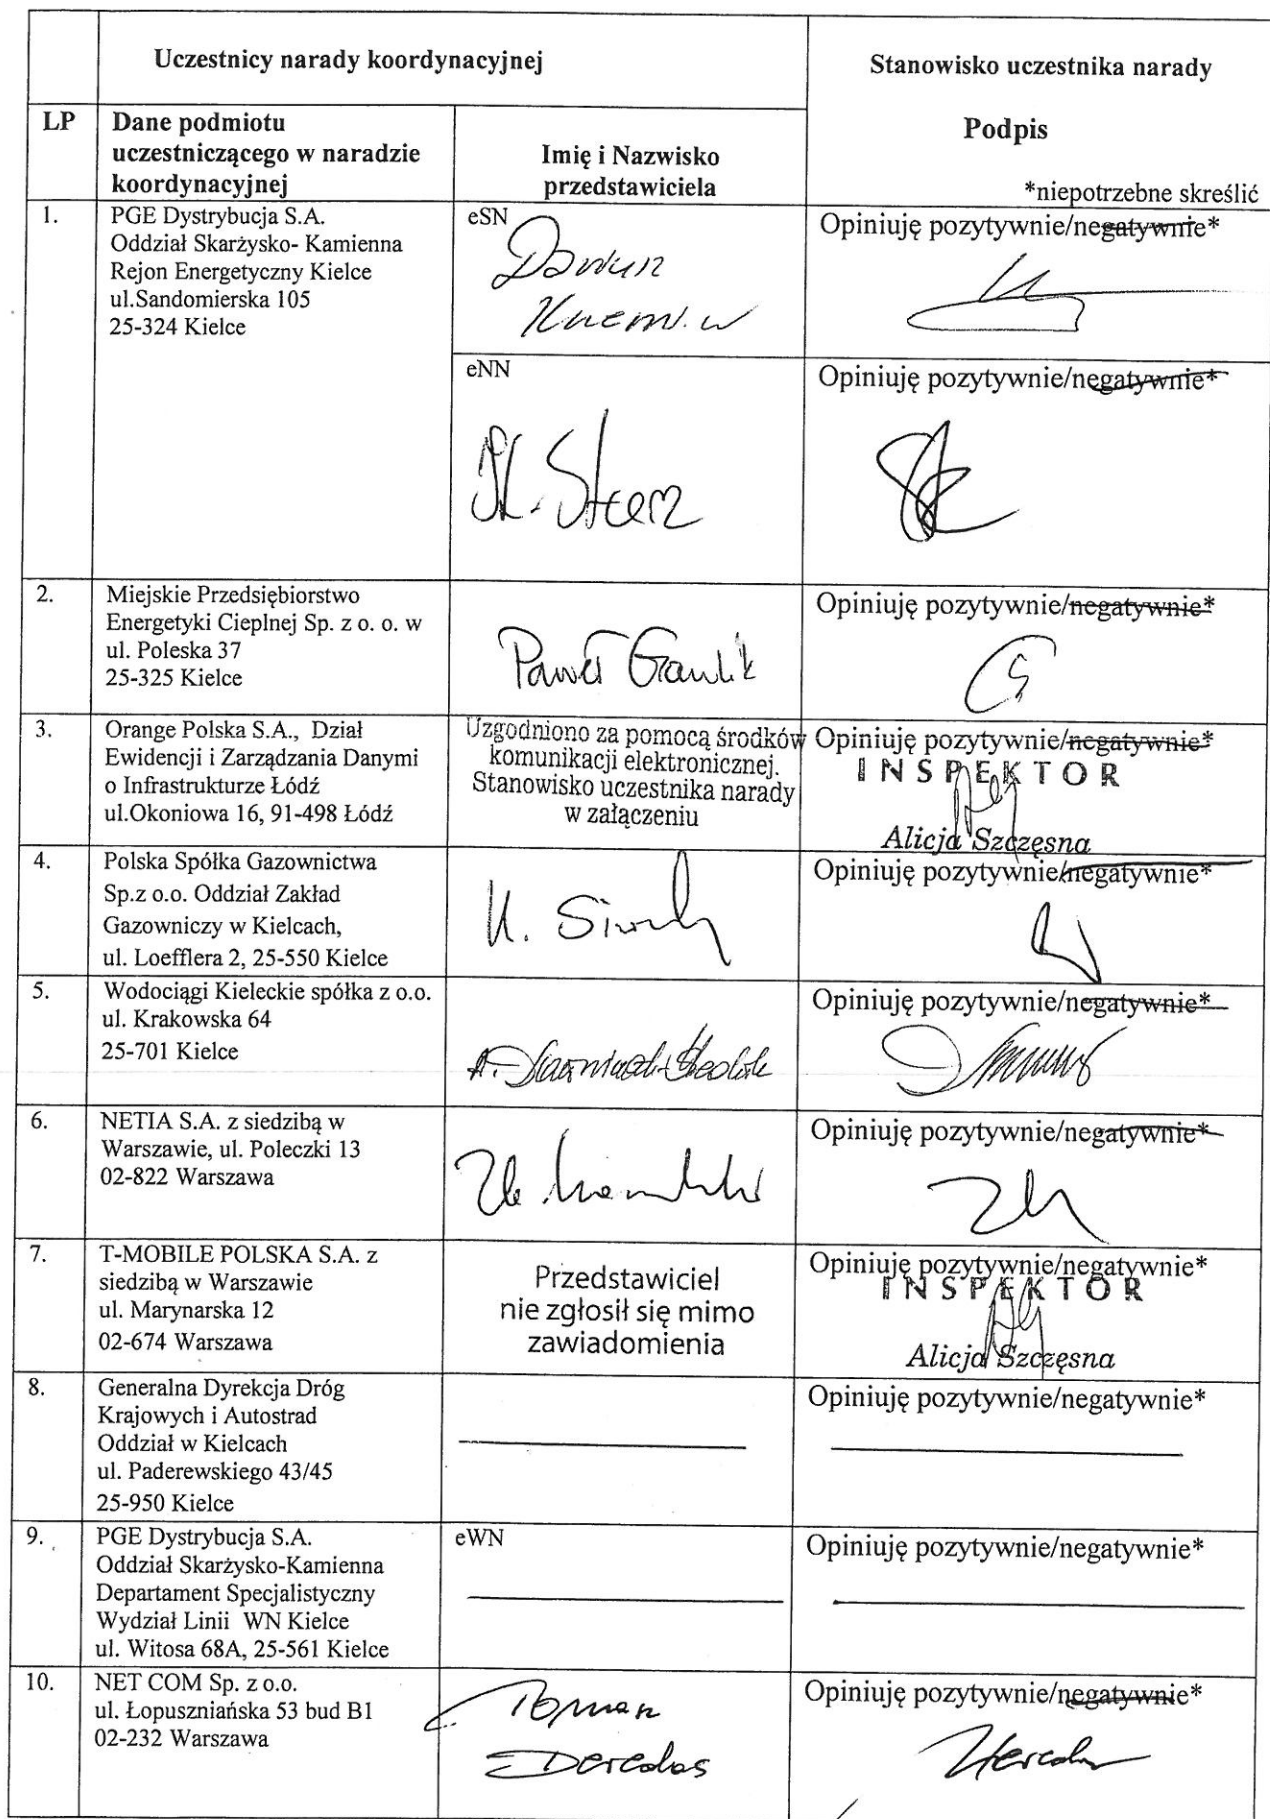 Uczestnicy narady koordynacyjnej
Stanowisko uczestnika narady
Podpis
*niepotrzebne skreślić
LP
Dane podmiotu
uczestniczącego w naradzie
koordynacyjnej
Imię i Nazwisko
przedstawiciela
1.
PGE Dystrybucja S.A.
Oddział Skarżysko- Kamienna
Rejon Energetyczny Kielce
ul.Sandomierska 105
25-324 Kielce
eSN
Opiniuję pozytywnie/negatywnie*
eNN
Opiniuję pozytywnie/negatywnie*
2.
Miejskie Przedsiębiorstwo
Energetyki Cieplnej Sp. z o. o. w
ul. Poleska 37
25-325 Kielce
Paweł Gawlik
Opiniuję pozytywnie/negatywnie*
3.
Orange Polska S.A., Dział
Ewidencji i Zarządzania Danymi
o Infrastrukturze Łódź
ul.Okoniowa 16, 91-498 Łódź
Uzgodniono za pomocą środków
komunikacji elektronicznej.
Stanowisko uczestnika narady
w załączeniu
Opiniuję pozytywnie/negatywnie*
INSPEKTOR
Alicja Szczęsna
4.
Polska Spółka Gazownictwa
Sp.z o.o. Oddział Zakład
Gazowniczy w Kielcach,
ul. Loefflera 2, 25-550 Kielce
Opiniuję pozytywnie/negatywnie*
5.
Wodociągi Kieleckie spółka z o.o.
ul. Krakowska 64
25-701 Kielce
Opiniuję pozytywnie/negatywnie*
6.
NETIA S.A. z siedzibą w
Warszawie, ul. Poleczki 13
02-822 Warszawa
Opiniuję pozytywnie/negatywnie*
7.
T-MOBILE POLSKA S.A. z
siedzibą w Warszawie
ul. Marynarska 12
02-674 Warszawa
Przedstawiciel
nie zgłosił się mimo
zawiadomienia
Opiniuję pozytywnie/negatywnie*
INSPEKTOR
Alicja Szczęsna
8.
Generalna Dyrekcja Dróg
Krajowych i Autostrad
Oddział w Kielcach
ul. Paderewskiego 43/45
25-950 Kielce
Opiniuję pozytywnie/negatywnie*
9.
PGE Dystrybucja S.A.
Oddział Skarżysko-Kamienna
Departament Specjalistyczny
Wydział Linii WN Kielce
ul. Witosa 68A, 25-561 Kielce
eWN
Opiniuję pozytywnie/negatywnie*
10.
NET COM Sp. z o.o.
ul. Łopuszniańska 53 bud B1
02-232 Warszawa
Opiniuję pozytywnie/negatywnie*